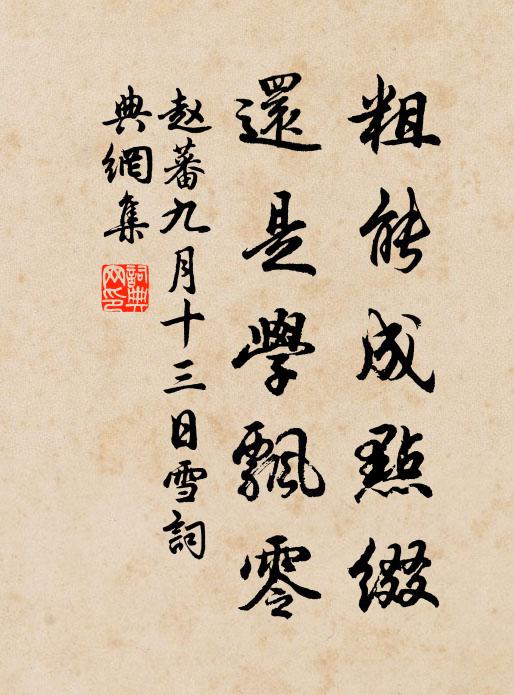 粗能成點綴
還是學飄零
赵蕃九月十三日雪詞
典網集
詞典網印